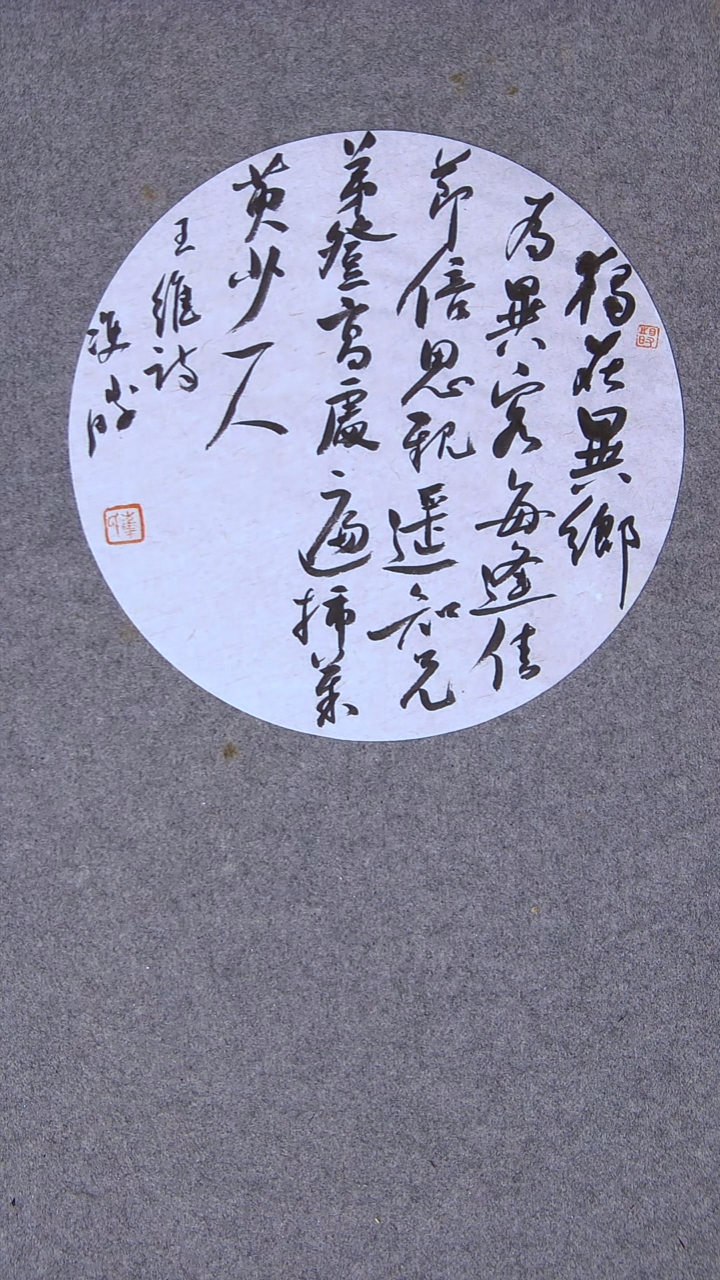 獨在異鄉
為異客每逢佳
節倍思親遥知兄
弟登高處遍插茱
萸少一人
王維詩